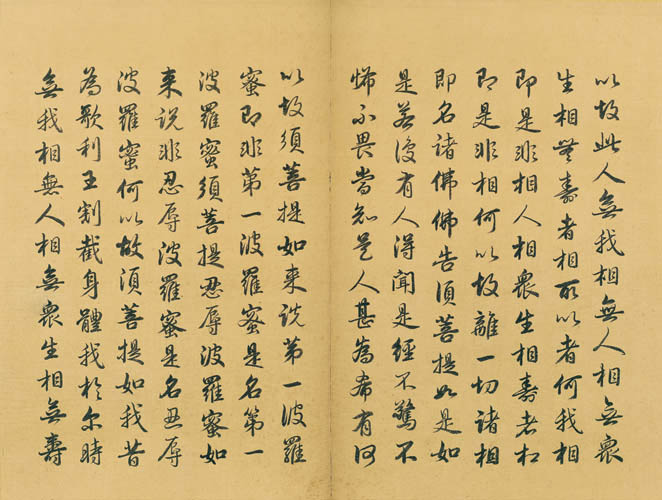 以故此人無我相無人相無眾
生相無壽者相所以者何我相
即是非相人相眾生相壽者相
即是非相何以故離一切諸相
即名諸佛佛告須菩提如是如
是若復有人得聞是經不驚不
怖不畏當知是人甚為希有何
以故須菩提如来說第一波羅
蜜即非第一波羅蜜是名第一
波羅蜜須菩提忍辱波羅蜜如
来說非忍辱波羅蜜是名忍辱
波羅蜜何以故須菩提如我昔
為歌利王割截身體我於尔時
無我相無人相無眾生相無壽